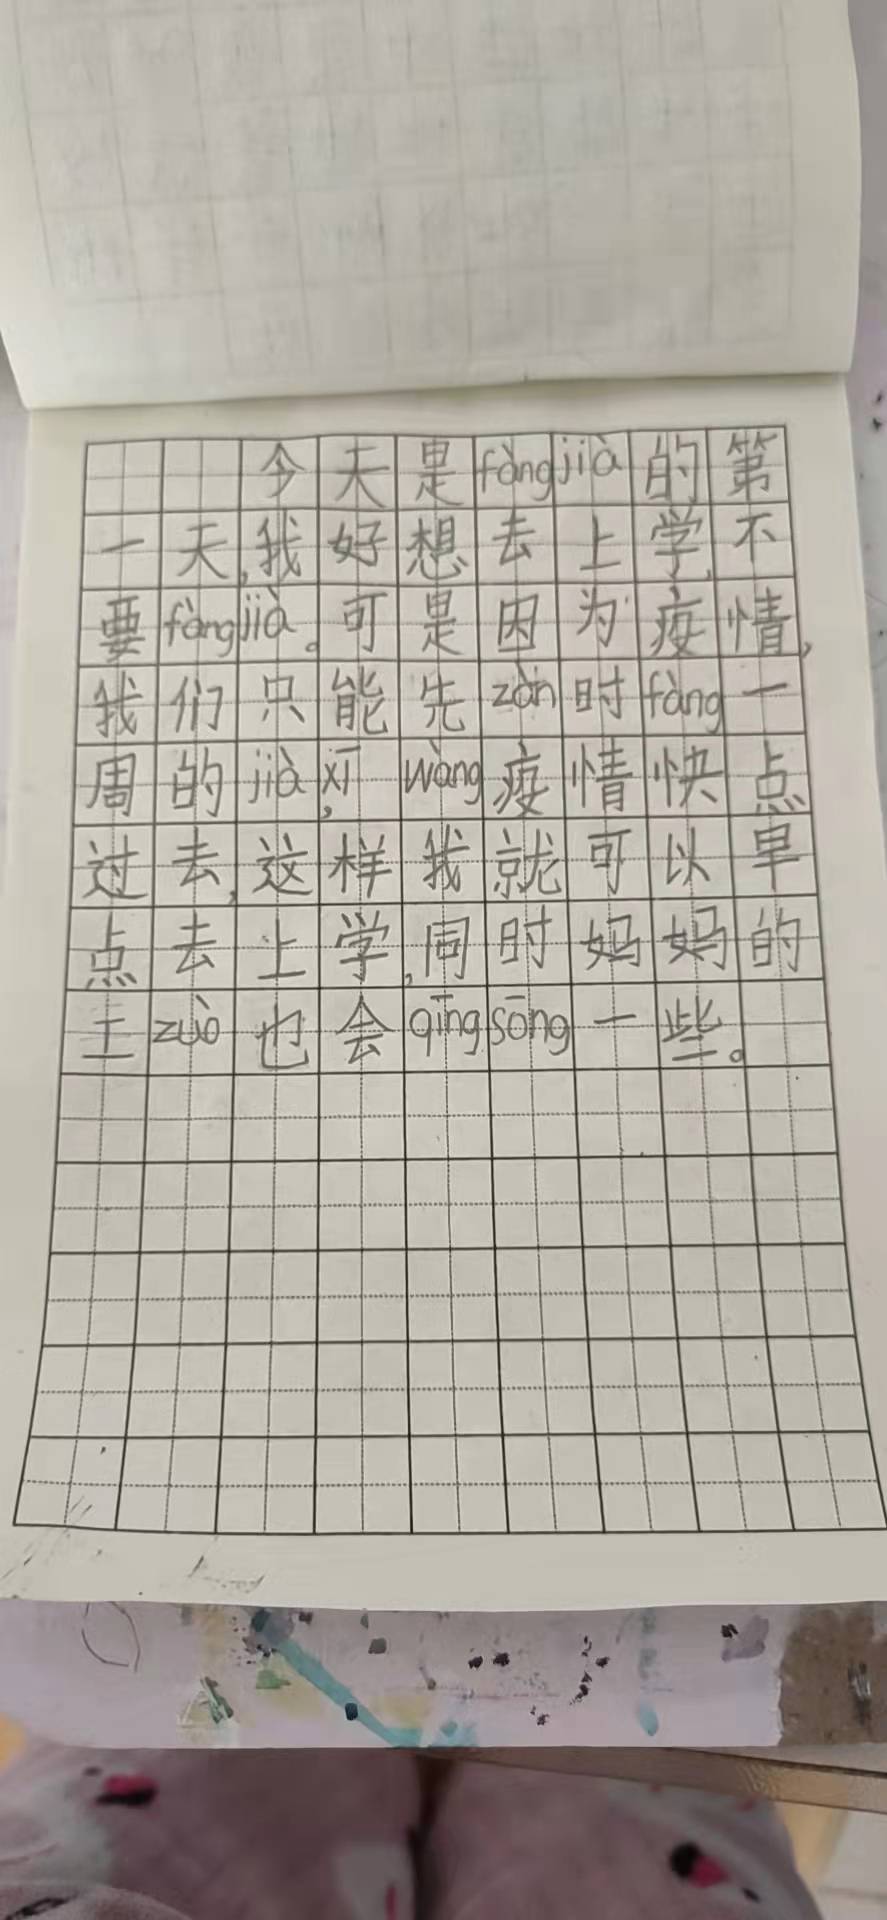 今天是fàngjià的第
一天,我好想去上学,不
要fàngjià。可是因为疫情,
我们只能先zàn时fàng一
周的jià,xīwàng疫情快点
过去,这样我就可以早
点去上学,同时妈妈的
工zuò也会qīngsōng一些。